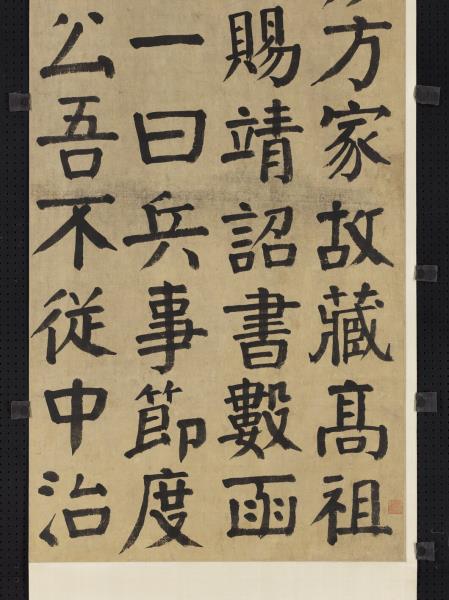 方家故藏高祖
賜靖詔書數函
一曰兵事節度
公吾不従中治